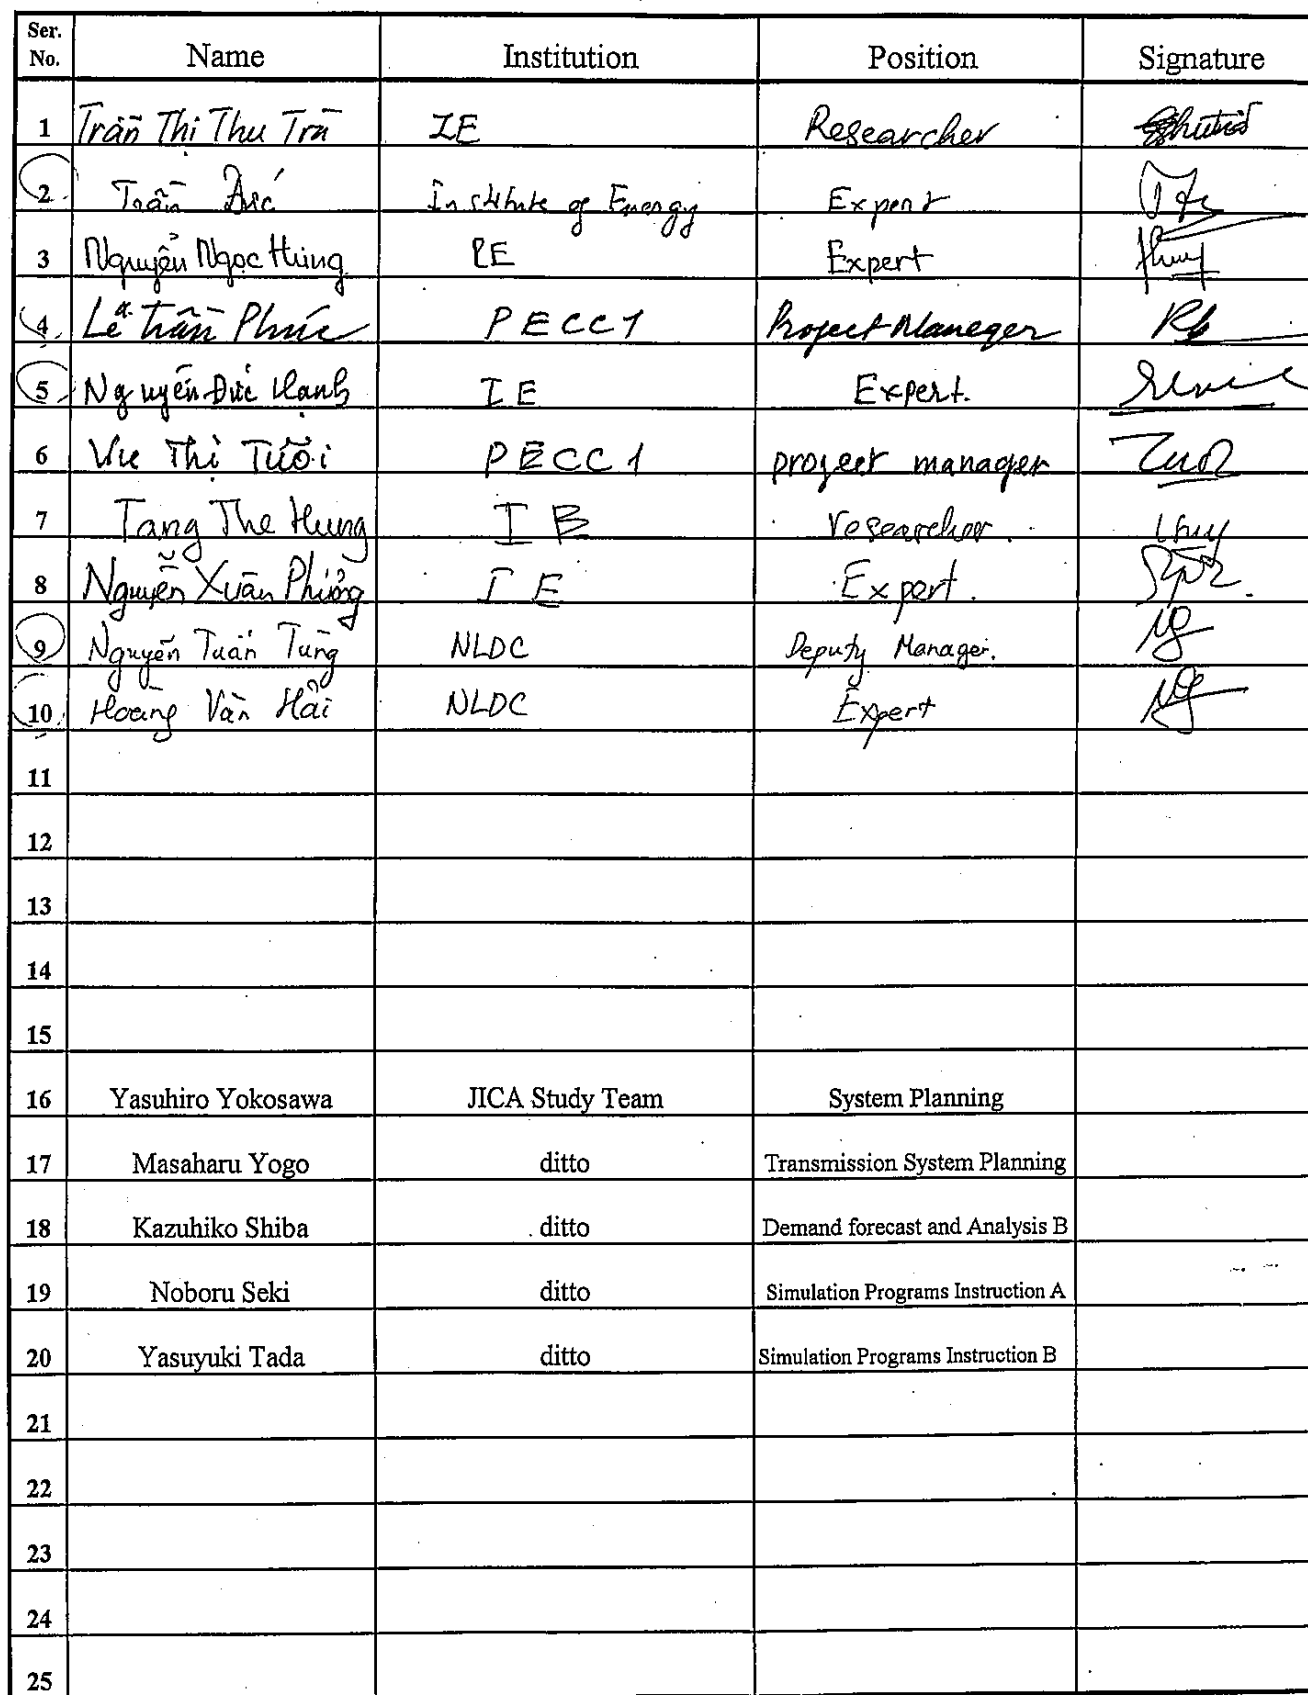 Ser. No. Name Institution Position Signature
1 Trần Thị Thu Trà IE Researcher
2 Trần Đức Institute of Energy Expert
3 Nguyễn Ngọc Hùng IE Expert
4 Lê Trần Phúc PECC1 Project Maneger
5 Nguyễn Đức Hạnh IE Expert.
6 Vu Thị Tươi PECC1 project manager
7 Tang The Hung IE researcher.
8 Nguyễn Xuân Phương IE Expert.
9 Nguyễn Tuấn Tùng NLDC Deputy Manager.
10 Hoàng Văn Hải NLDC Expert
11
12
13
14
15
16 Yasuhiro Yokosawa JICA Study Team System Planning
17 Masaharu Yogo ditto Transmission System Planning
18 Kazuhiko Shiba ditto Demand forecast and Analysis B
19 Noboru Seki ditto Simulation Programs Instruction A
20 Yasuyuki Tada ditto Simulation Programs Instruction B
21
22
23
24
25